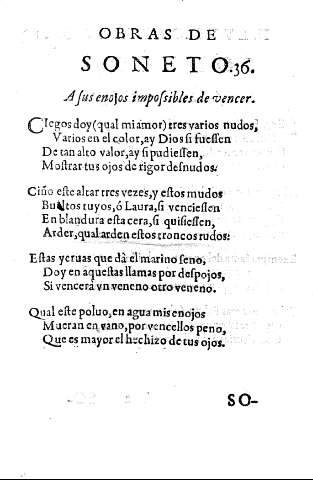 OBRAS DE
SONETO.36.
A sus enojos impoſsibles de vencer.
CIegos doy (qual mi amor) tres varios nudos,
Varios en el color, ay Dios ſi fueſſen
De tan alto valor, ay ſi pudieſſen,
Moſtrar tus ojos de rigor deſnudos.
Ciño eſte altar tres vezes, y eſtos mudos
Bultos tuyos, ó Laura, ſi vencieſſen
En blandura eſta cera, ſi quiſieſſen,
Arder, qual arden eſtos troncos rudos.
Eſtas yeruas que dà el marino ſeno,
Doy en aqueſtas llamas por deſpojos,
Si vencerà vn veneno otro veneno.
Qual eſte poluo, en agua mis enojos
Mueran en vano, por vencellos peno,
Que es mayor el hechizo de tus ojos.
SO-